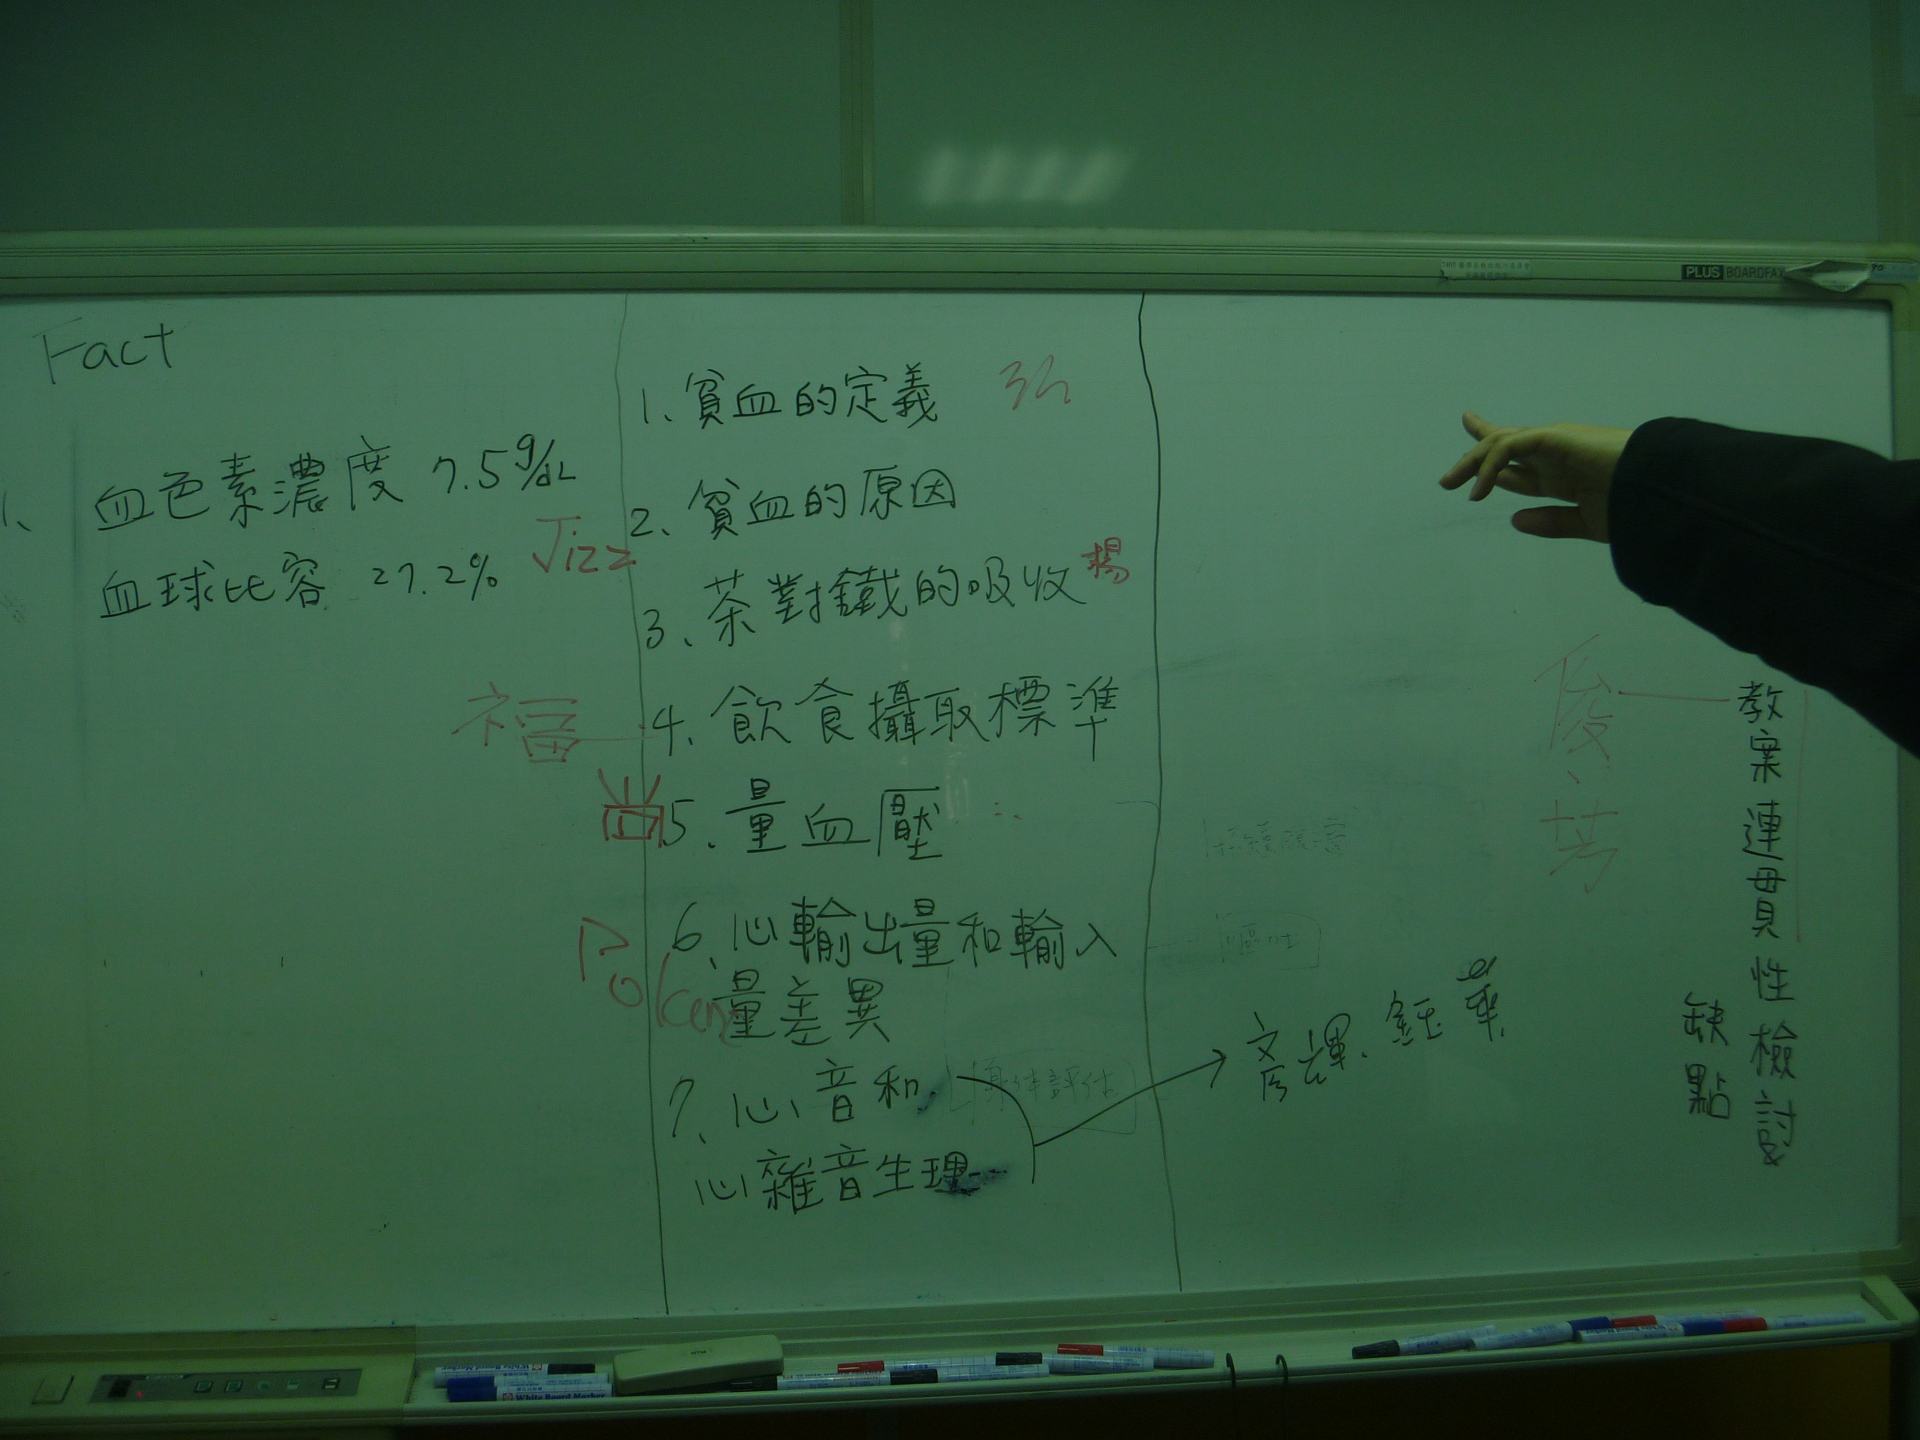 Fact
1、血色素濃度 7.5 g/dL
血球比容 27.2%
1、貧血的定義
2、貧血的原因
Jizz
3、茶對鐵的吸收 楊
福
4、飲食攝取標準
5、量血壓
6、心輸出量和輸入
量差異
Poken
7、心音和
心雜音生理
彥輝、鈺華
俊、芳
教案連毌貝性檢討
缺點
身体評估
PLUS BOARDFAX
White Board Marker